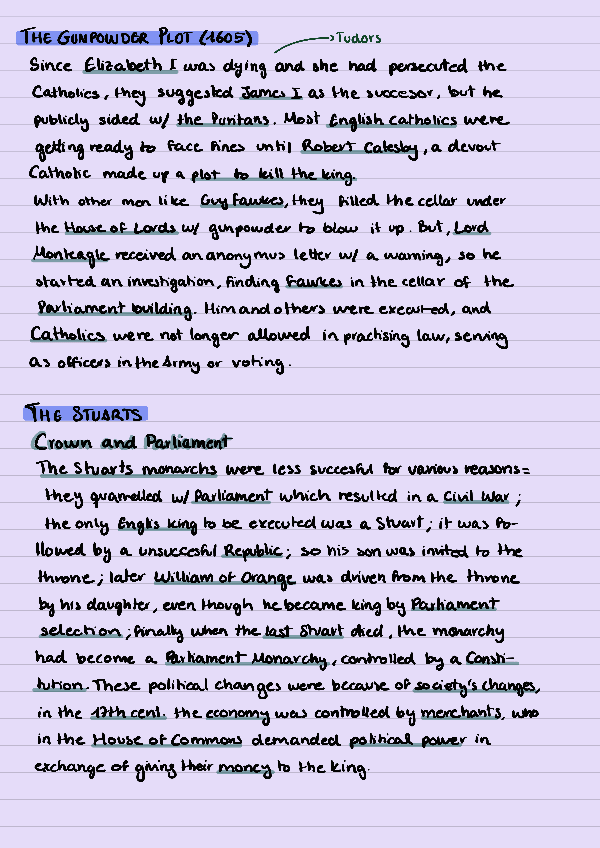 THE GUNPOWDER PLOT (1605) → Tudors
Since Elizabeth I was dying and she had persecuted the
Catholics, they suggested James I as the succesor, but he
publicly sided w/ the Puritans. Most English catholics were
getting ready to face fines until Robert Catesby, a devout
Catholic made up a plot to kill the king.
With other men like Guy Fawkes, they filled the cellar under
the House of Lords w/ gunpowder to blow it up. But, Lord
Monteagle received an anonymus letter w/ a warning, so he
started an investigation, finding Fawkes in the cellar of the
Parliament building. Him and others were executed, and
Catholics were not longer allowed in practising law, serving
as officers in the Army or voting.
THE STUARTS
Crown and Parliament
The Stuarts monarchs were less succesful for various reasons:
they quarrelled w/ Parliament which resulted in a Civil War;
the only Englis king to be executed was a Stuart; it was fo-
llowed by a unsuccesful Republic; so his son was invited to the
throne; later William of Orange was driven from the throne
by his daughter, even though he became king by Parliament
selection; finally when the last Stuart died, the monarchy
had become a Parliament Monarchy, controlled by a Consti-
tution. These political changes were because of society's changes,
in the 17th cent. the economy was controlled by merchants, who
in the House of Commons demanded political power in
exchange of giving their money to the king.